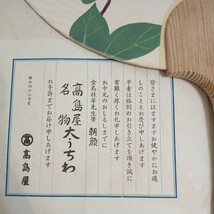 皆さまにはますます御健やかにお過
しのこととお慶び申しあげます
平素は格別のお引き立てを頂き誠に
有難く厚くお礼申しあげます
お中元のおしるしまでに
金島桂華先生筆 朝顔
高島屋
名物 大うちわ
お手許までお届け申しあげます
昭和四十八年夏
髙島屋